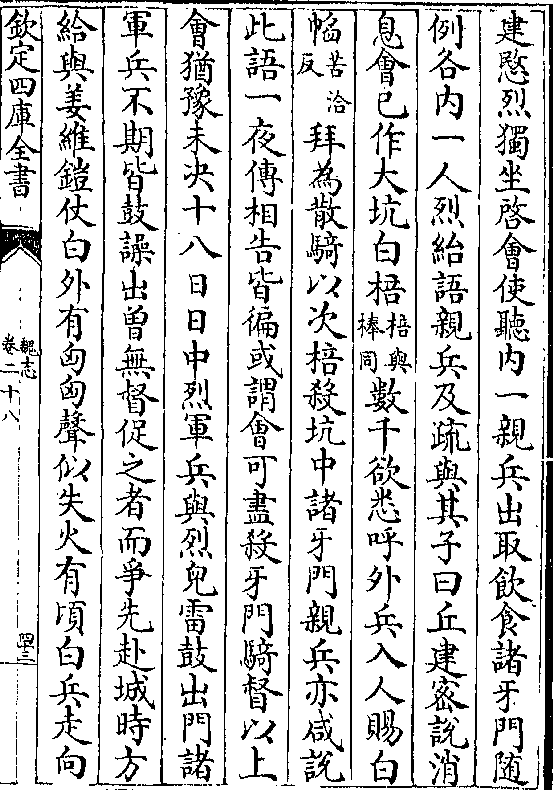 建愍烈獨坐啓會使聽内一親兵出取飲食諸牙門随
例各内一人烈紿語親兵及疏與其子曰丘建宻説消
息會已作大坑白棓棓與棒同數千欲悉呼外兵入人賜白
㡊苦洽反拜為散騎以次棓殺坑中諸牙門親兵亦咸説
此語一夜傳相告皆徧或謂會可盡殺牙門騎督以上
會猶豫未决十八日日中烈軍兵與烈兒雷鼓出門諸
軍兵不期皆鼓譟出曾無督促之者而爭先赴城時方
給與姜維鎧仗白外有匈匈聲似失火有頃白兵走向
欽定四庫全書
魏志
卷二十八
四三